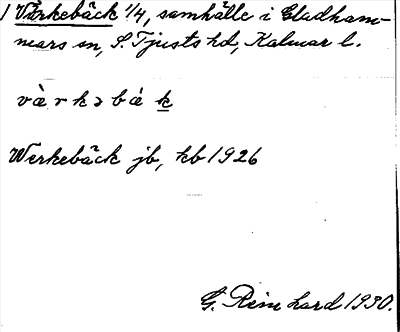 1 Värkebäck 1/4, samhälle i Gladham-
mars sn, S. Tjusts hd, Kalmar l.
vàrkəbákֽ
Werkebäck jb, kb 1926
G. Reinhard 1930.